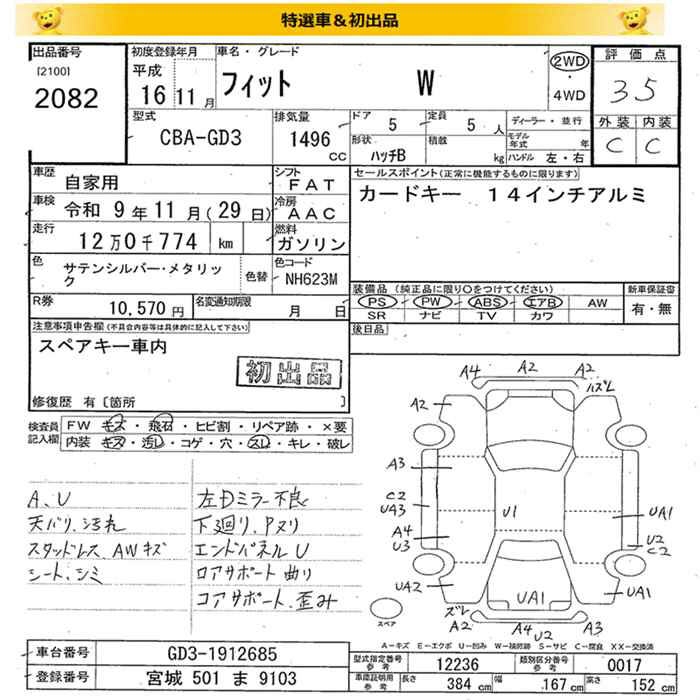 特選車＆初出品
出品番号
[2100]
2082
初度登録年月
平成
16 11 月
車名・グレード
フィット W
2WD
・
4WD
評価点
3.5
外装 内装
C C
型式
CBA-GD3
排気量
1496 CC
ドア 5
定員 5 人
形状 ハッチB
積載 kg
ディーラー・並行
モデル年式 年
ハンドル 左・右
車歴 自家用
シフト FAT
車検 令和 9 年 11 月 (29 日)
冷房 AAC
走行 12万0千774 km
燃料 ガソリン
色 サテンシルバー・メタリック
色替
色コード NH623M
R券 10,570 円
名変通知期限 月 日
セールスポイント(正常に機能するものに限ります)
カードキー 14インチアルミ
装備品 (純正品に限り○をつけてください)
PS PW ABS エアB AW
SR ナビ TV カワ
新車保証書
有・無
後日品
注意事項申告欄(不具合内容等は具体的に記入して下さい)
スペアキー車内
初出品
修復歴 有〔箇所 〕
検査員記入欄
FW キズ・飛石・ヒビ割・リペア跡・×要
内装 キズ・汚し・コゲ・穴・スレ・キレ・破レ
A、U
天バリ、汚れ
スタッドレス、AWキズ
シート、シミ
左Dミラー不良
下廻り、Pヌリ
エンドパネルU
ロアサポート曲り
コアサポート、歪み
A4 A2 A2
ハズレ
A2
A3
C2
UA3
A4
U3
UA2
U1
UA1
U2
C2
UA1
UA1
ズレ
A2
A4
U2
A3
スペア
A－キズ E－エクボ U－凹み W－補修跡 S－サビ C－腐食 XX－交換済
車台番号 GD3-1912685
登録番号 宮城 501 ま 9103
型式指定番号 参考 12236
類別区分番号 参考 0017
車庫証明用 参考
長さ 384 cm
幅 .167 cm
高さ 152 cm